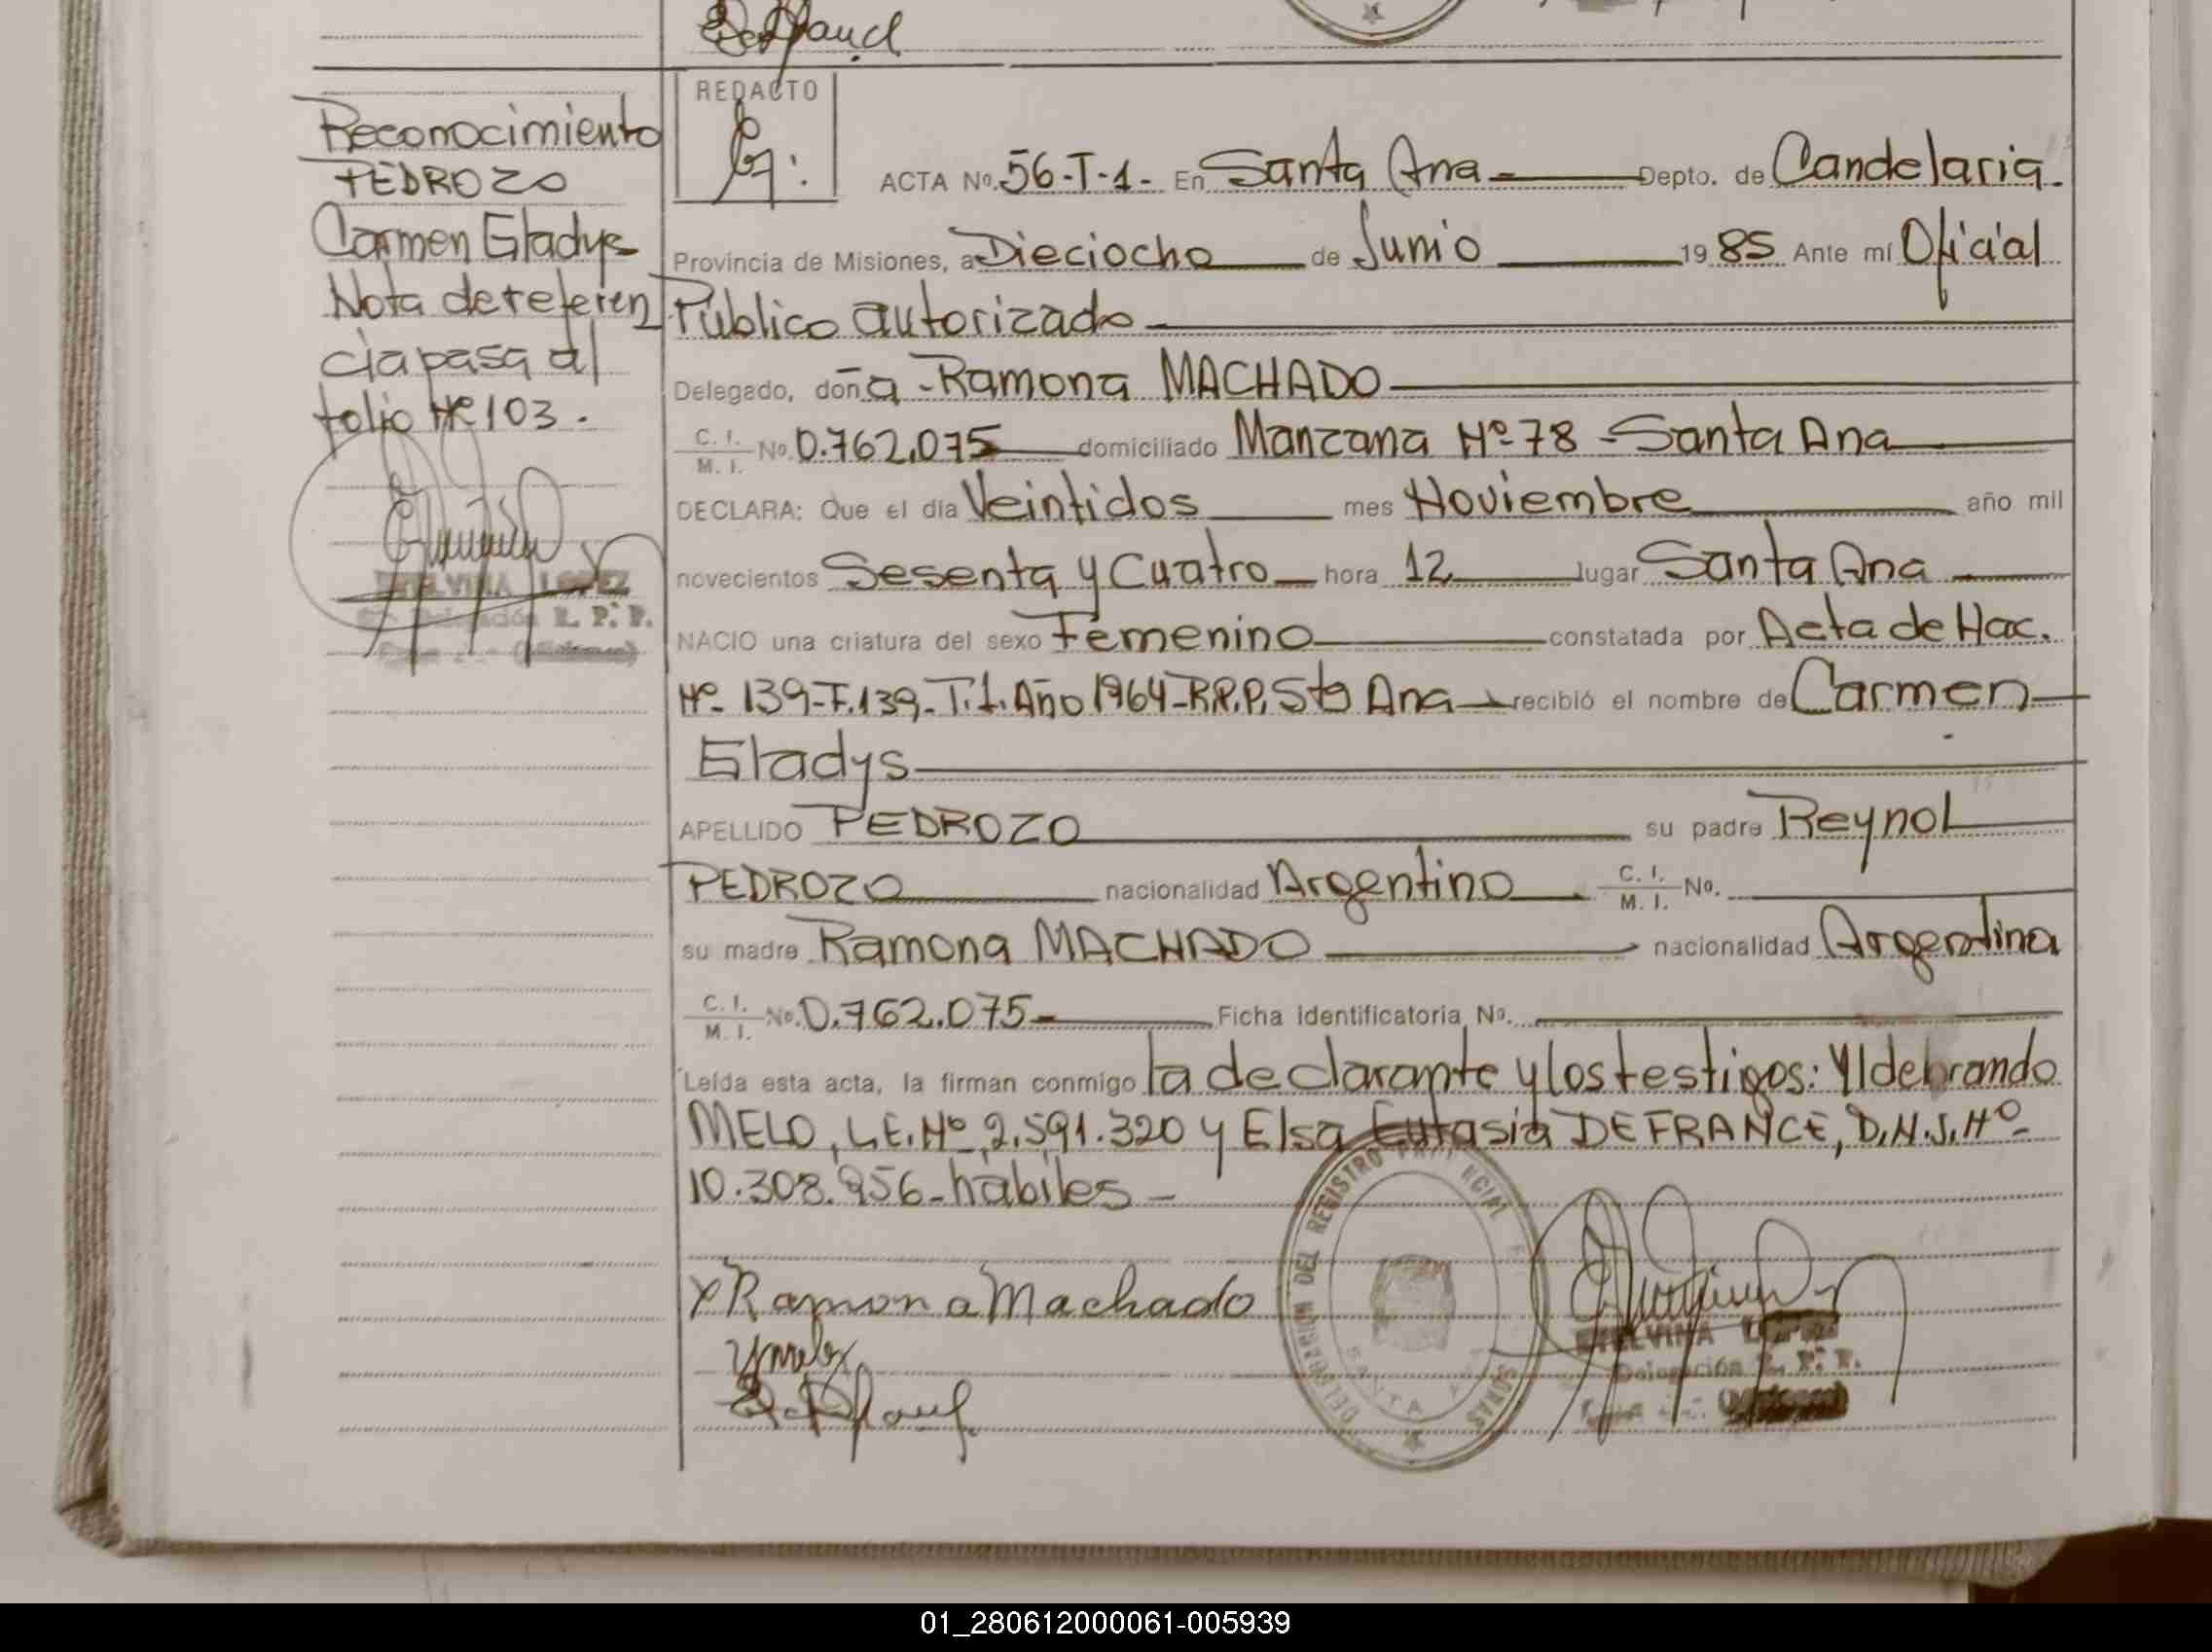 Reconocimiento
PEDROZO
Carmen Gladys
Nota de referen
cia pasa al
folio Nº 103.
ETELVINA LOPEZ
Delegación R. P. P.
REDACTO
ACTA Nº. 56-T-1- En Santa Ana Depto. de Candelaria.
Provincia de Misiones, a Dieciocho de Junio 19 85 Ante mí Oficial
Público autorizado
Delegado, doña Ramona MACHADO
C. I. / M. I. Nº. 0.762.075 domiciliado Manzana Nº 78 - Santa Ana
DECLARA: Que el día Veintidos mes Noviembre año mil
novecientos Sesenta y Cuatro hora 12 lugar Santa Ana
NACIO una criatura del sexo Femenino constatada por Acta de Nac.
Nº 139-F.139-T.1. Año 1964-R.R.P. Sta Ana recibió el nombre de Carmen
Gladys
APELLIDO PEDROZO su padre Reynol
PEDROZO nacionalidad Argentino C. I. / M. I. Nº.
su madre Ramona MACHADO nacionalidad Argentina
C. I. / M. I. Nº. 0.762.075 Ficha identificatoria Nº.
Leída esta acta, la firman conmigo la declarante y los testigos: Yldebrando
MELO, L.E. Nº 2.591.320 y Elsa Eufasia DE FRANCE, D.N.I. Nº
10.308.956 - hábiles -
x Ramona Machado
DELEGACION DEL REGISTRO SANTA
ETELVINA LOPEZ
Delegación R. P. P.
01_280612000061-005939